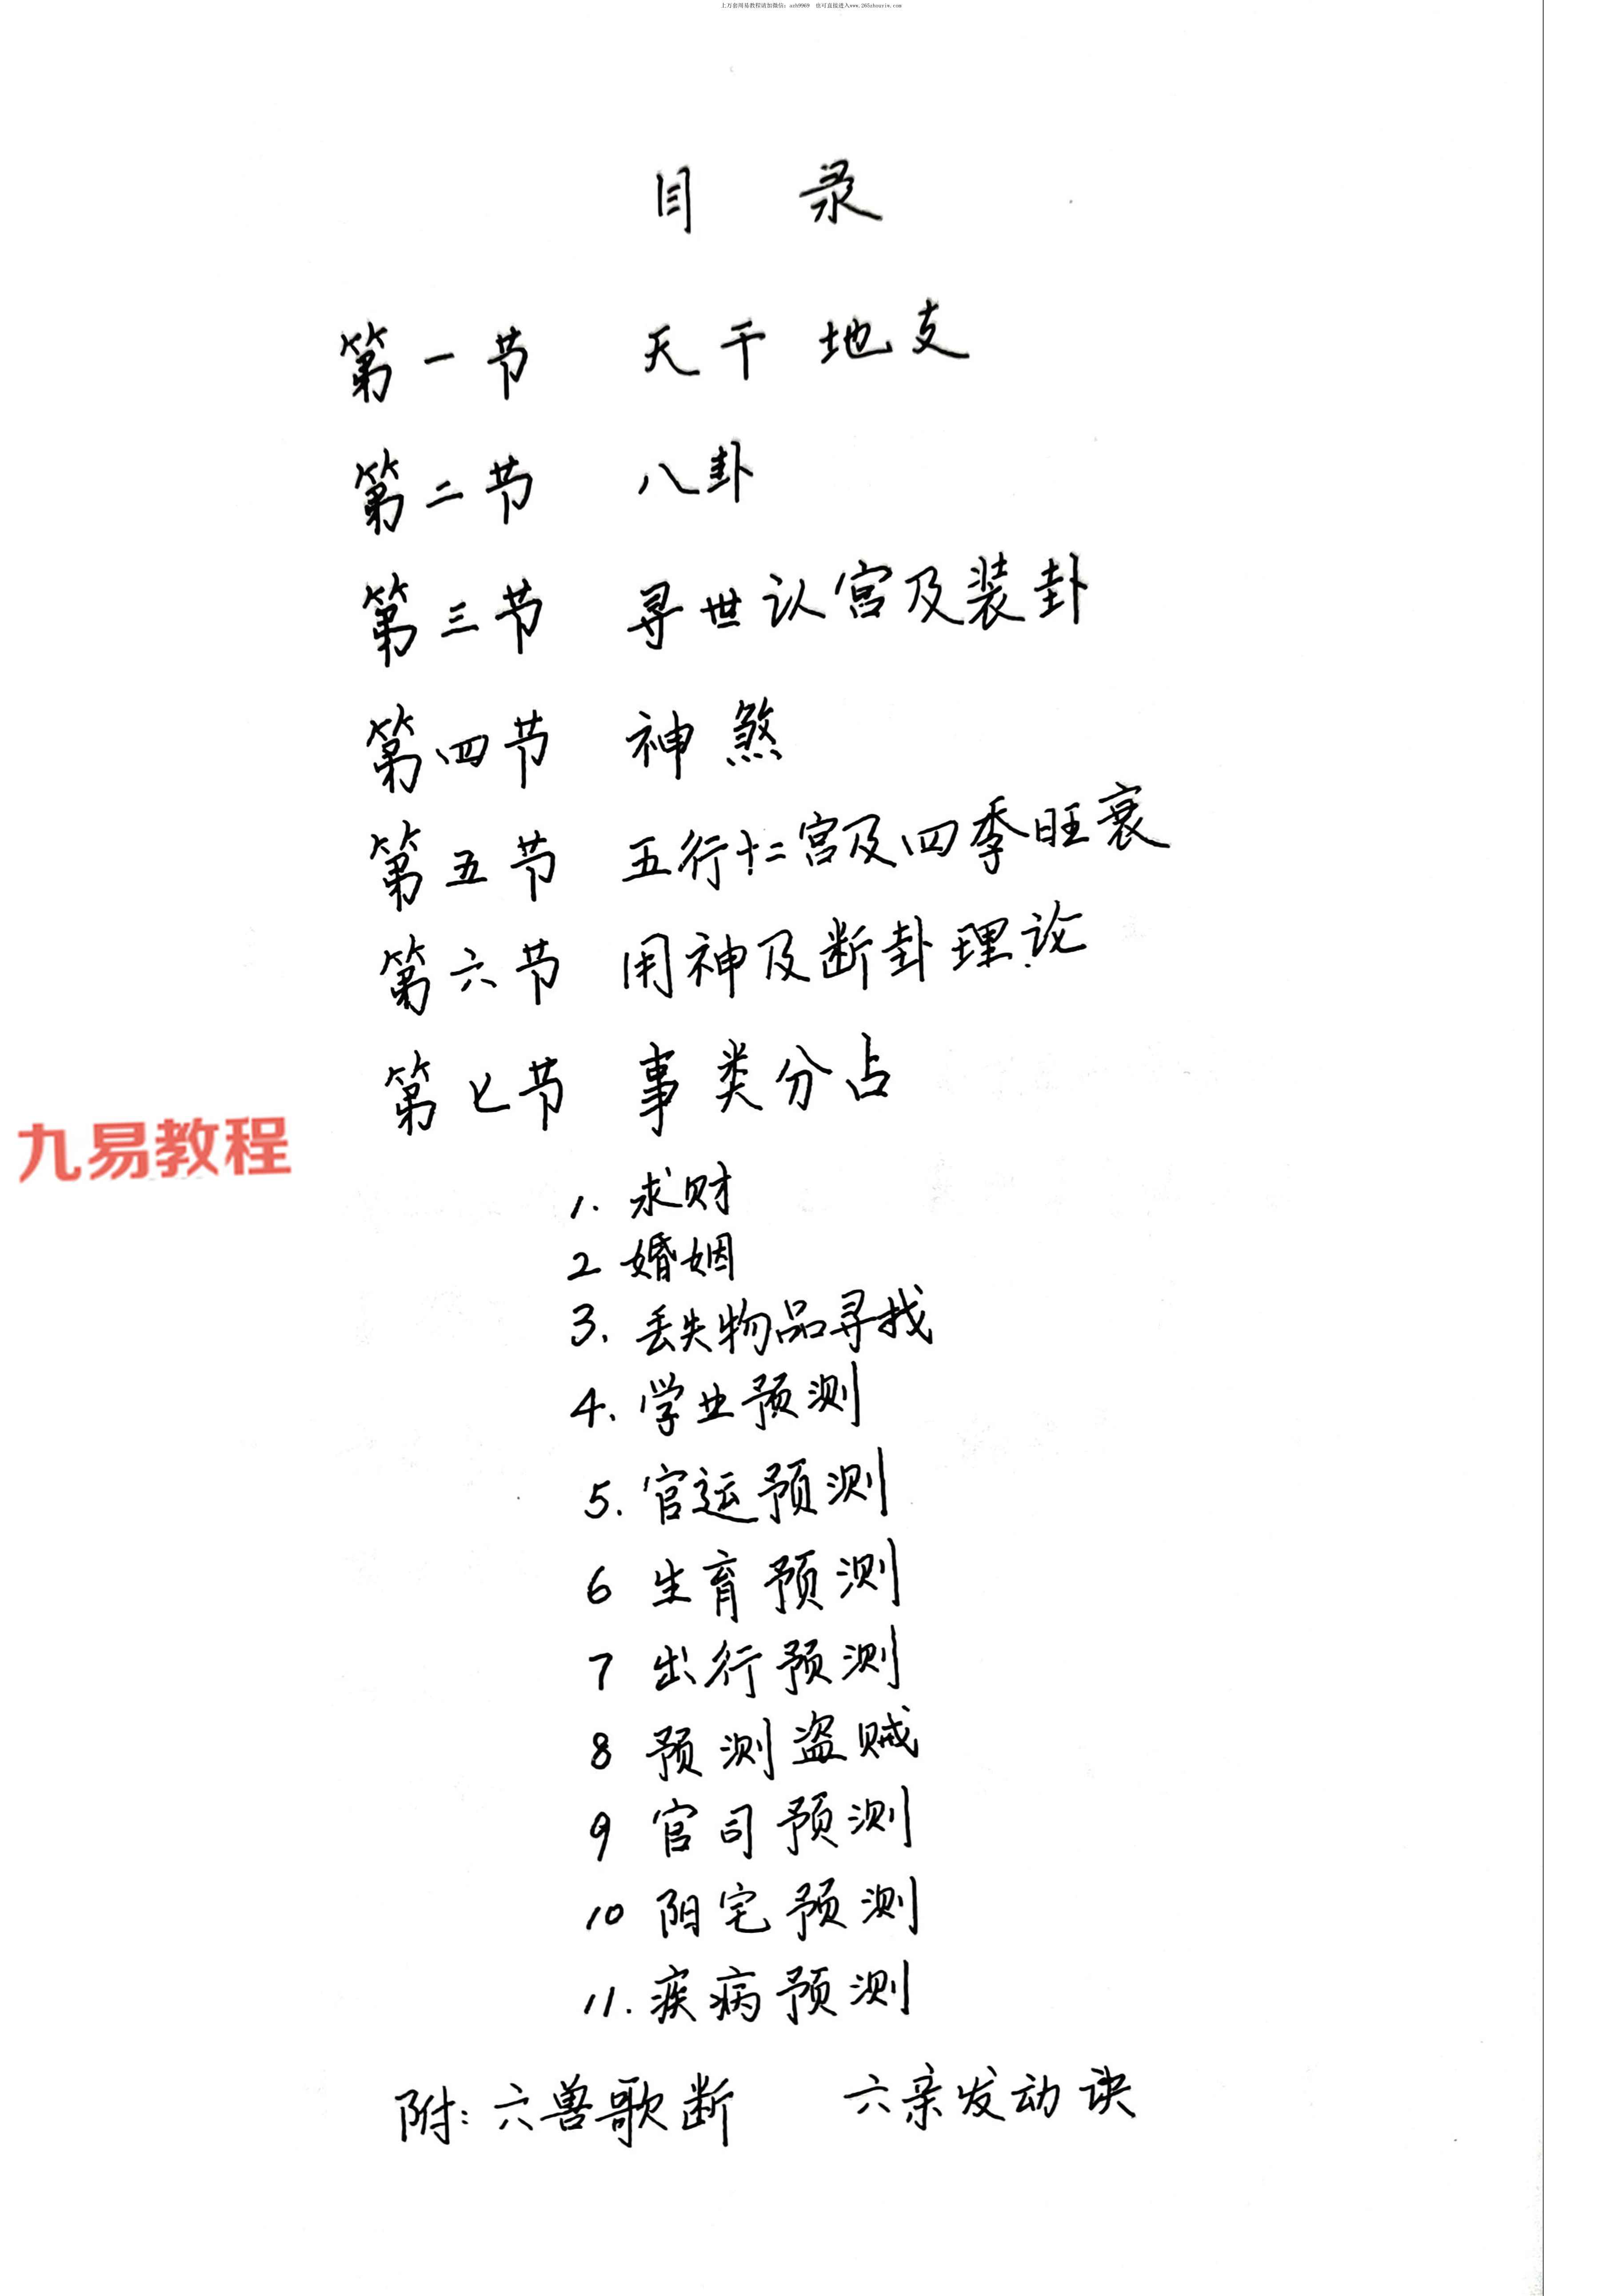 上万套周易教程请加微信：ozh9969 也可直接进入www.265zhouyiw.com
目 录
第一节 天干地支
第二节 八卦
第三节 寻世认宫及装卦
第四节 神煞
第五节 五行十二宫及四季旺衰
第六节 用神及断卦理论
第七节 事类分占
九易教程
1. 求财
2 婚姻
3. 丢失物品寻找
4. 学业预测
5. 官运预测
6 生育预测
7 出行预测
8 预测盗贼
9 官司预测
10 阳宅预测
11. 疾病预测
附：六兽歌断 六亲发动诀